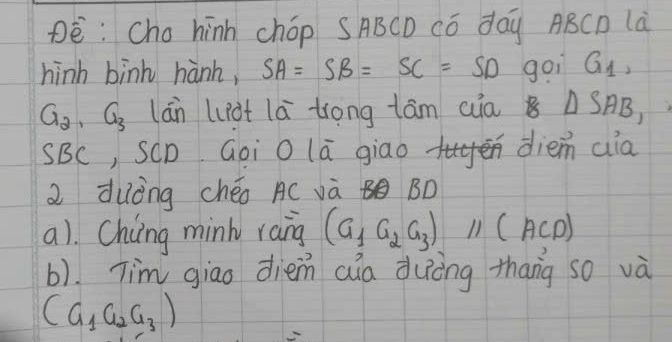 Đề: Cho hình chóp SABCD có đáy ABCD là
hình bình hành, SA = SB = SC = SD gọi G1,
G2, G3 lần lượt là trọng tâm của Δ SAB,
SBC, SCD. Gọi O là giao điểm của
2 đường chéo AC và BD
a). Chứng minh rằng (G1 G2 G3) // (ACD)
b). Tìm giao điểm của đường thẳng SO và
(G1G2G3)